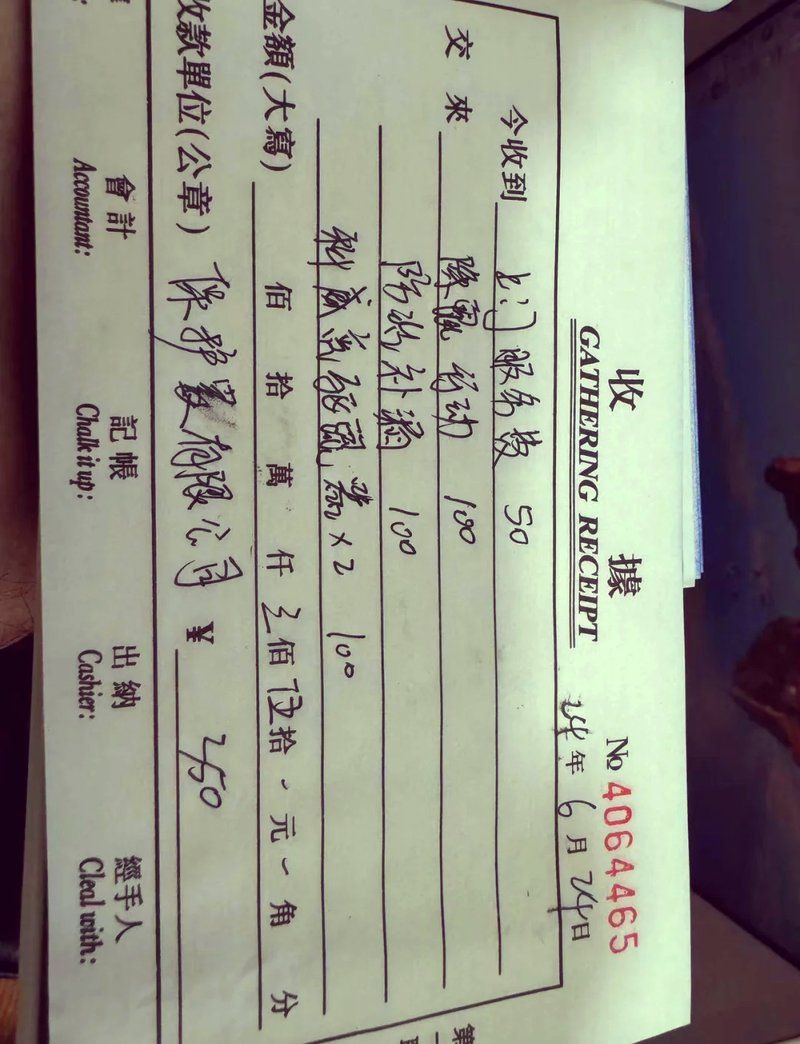 收據
GATHERING RECEIPT
No 4064465
24年6月24日
今收到 上门服务费 50
交來 100
防水补漏 100
×2 100
金額(大寫) 佰拾萬仟 佰伍拾、元、角分
收款單位(公章) 保护 有限公司 ¥ 350
會計 記帳 出納 經手人
Accountant: Chalk it up: Cashier: Cleal with:
第